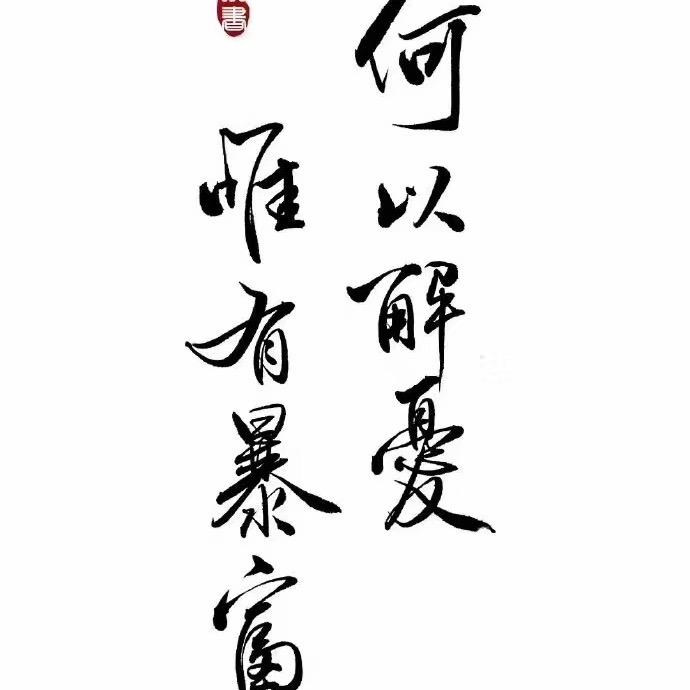 何以解憂
唯有暴富
書